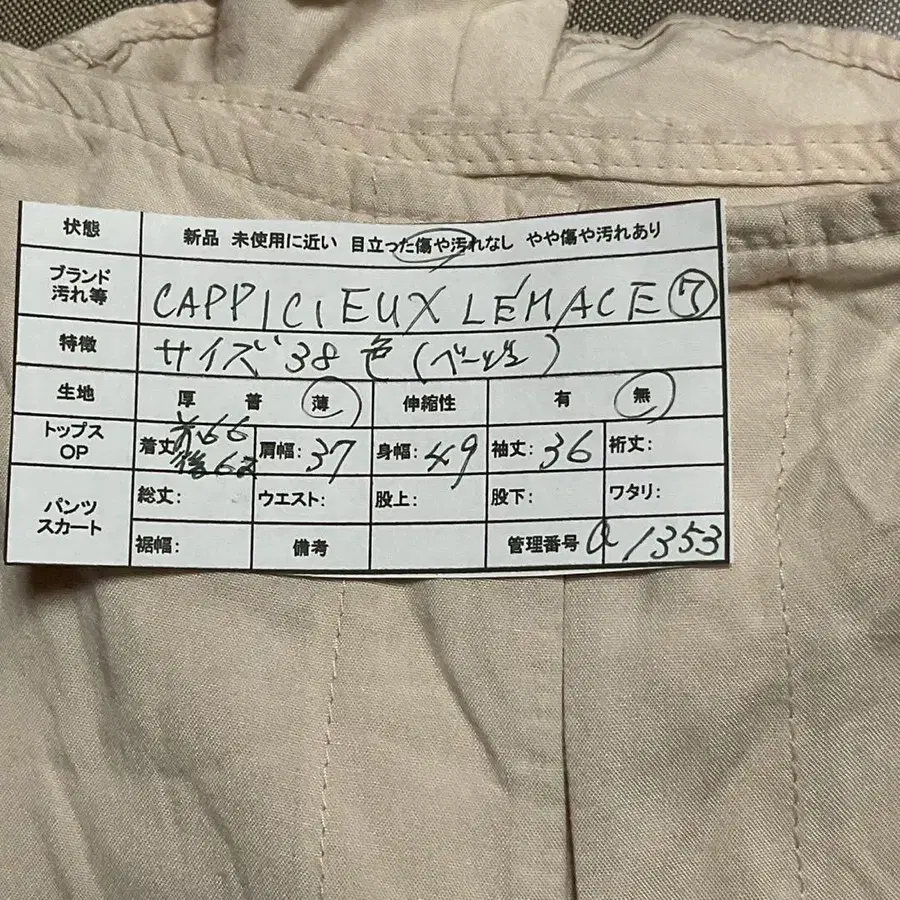 状態 新品 未使用に近い 目立った傷や汚れなし やや傷や汚れあり
ブランド
汚れ等 CAPPICIEUX LÉMACE ⑦
特徴 サイズ 38 色(ベージュ)
生地 厚 普 薄 伸縮性 有 無
トップス
OP 着丈 前66 後62 肩幅: 37 身幅: 49 袖丈: 36 裄丈:
パンツ
スカート 総丈: ウエスト: 股上: 股下: ワタリ:
裾幅: 備考 管理番号 a 1353